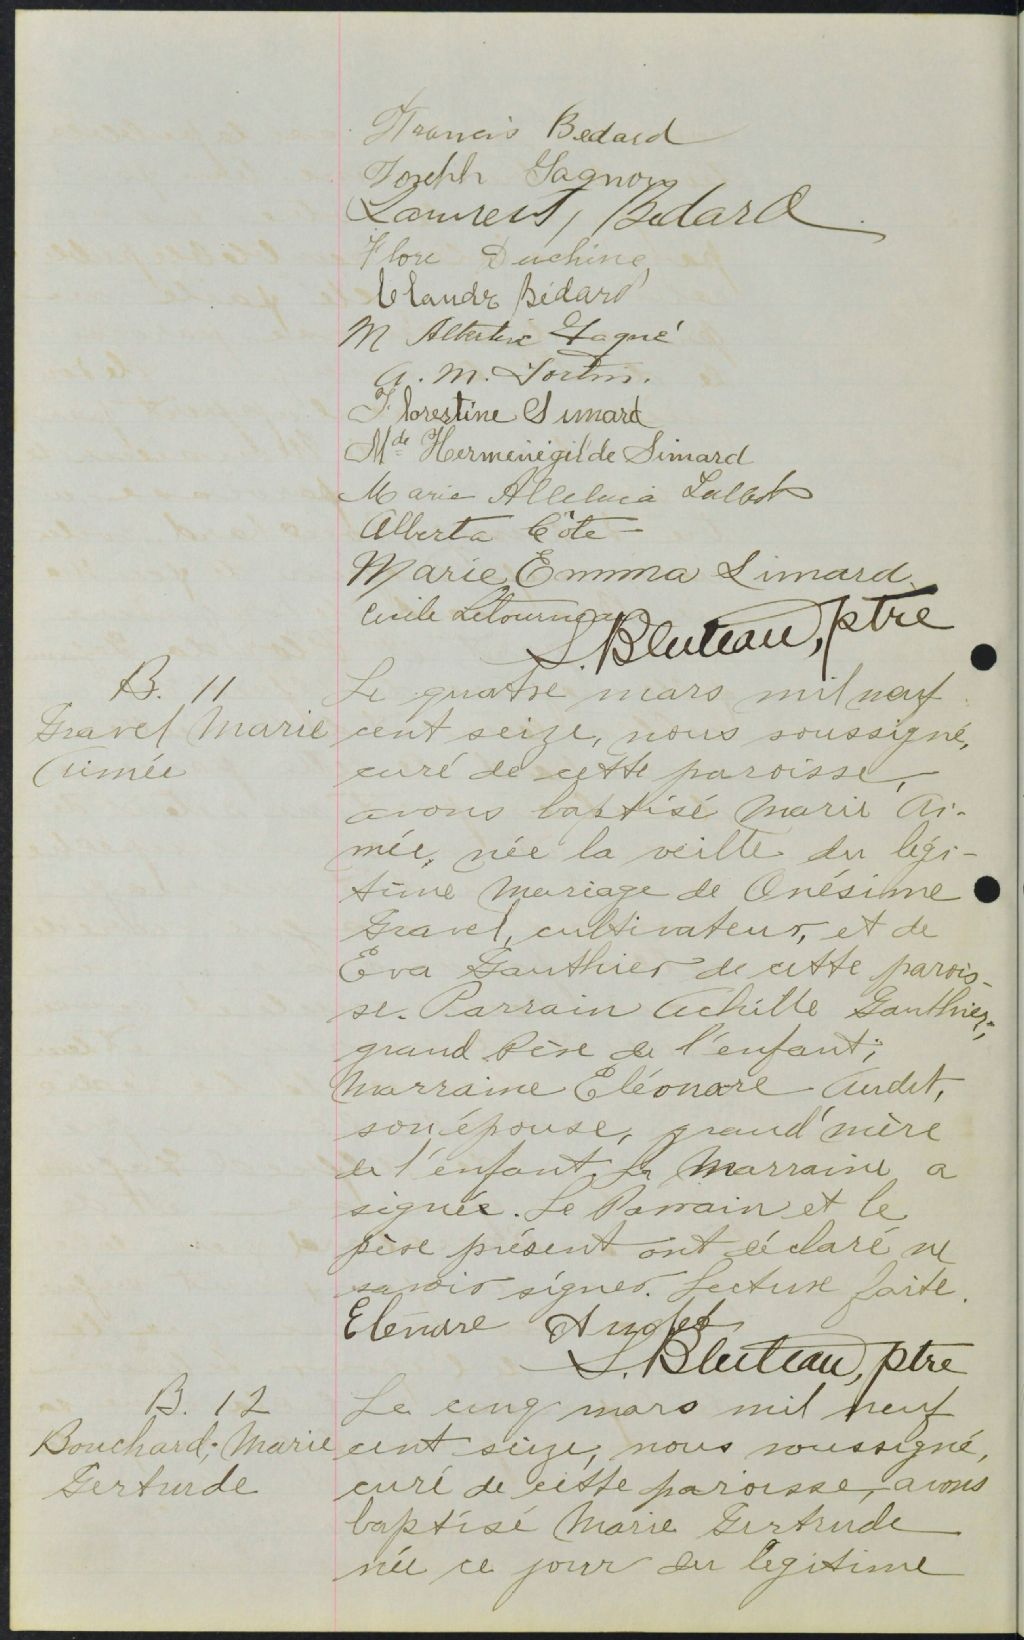 Francis Bedard
Joseph Gagnon
Laurent Bedard
Flore Duchine
Claude Bédard
M Albertine Gagné
A. M. Fortin.
Florestine Simard
Mde Herménégilde Simard
Marie Alleluia Talbot
Alberta Côté
Marie Emma Simard
Cécile Létourneau
S. Bluteau, ptre
B. 11
Gravel Marie
Aimée
Le quatre mars mil neuf
cent seize, nous soussigné,
curé de cette paroisse,
avons baptisé Marie Ai-
mée, née la veille du légi-
time Mariage de Onésime
Gravel, cultivateur, et de
Eva Gauthier de cette parois-
se. Parrain Achille Gauthier,
grand Père de l'enfant;
Marraine Eléonore Audet,
son épouse, grand'mère
de l'enfant. La Marraine a
signée. Le Parrain et le
père présent ont déclaré ne
savoir signer. Lecture faite.
Elénore Audet
S. Bluteau, ptre
B. 12
Bouchard, Marie
Gertrude
Le cinq mars mil neuf
cent seize, nous soussigné,
curé de cette paroisse, avons
baptisé Marie Gertrude
née ce jour du légitime